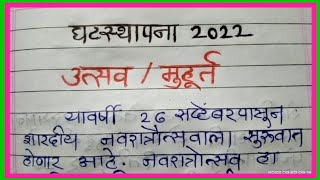 घटस्थापना 2022
उत्सव / मुहूर्त
यावर्षी 26 सप्टेंबरपासून
शारदीय नवरात्रौत्सवाला सुरुवात
होणार आहे. नवरात्रोत्सव हा